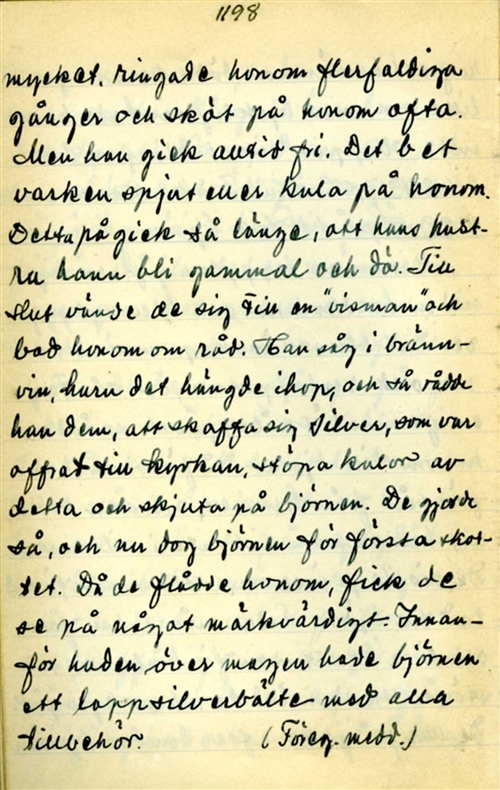 1198
mycket, ringade honom flerfaldiga
gånger och sköt på honom ofta.
Men han gick alltid fri. Det bet
varken spjut eller kula på honom.
Detta pågick så länge, att hans hust-
ru hann bli gammal och dö. Till
slut vände de sig till en "visman" och
bad honom om råd. Han såg i bränn-
vin, huru det hängde ihop, och så rådde
han dem, att skaffa sig silver, som var
offrat till kyrkan, stöpa kulor av
detta och skjuta på björnen. De gjorde
så, och nu dog björnen för första skot-
tet. Då de flådde honom, fick de
se på något märkvärdigt. Innan-
för huden över magen hade björnen
ett lappsilverbälte med alla
tillbehör. (Föreg. medd.)